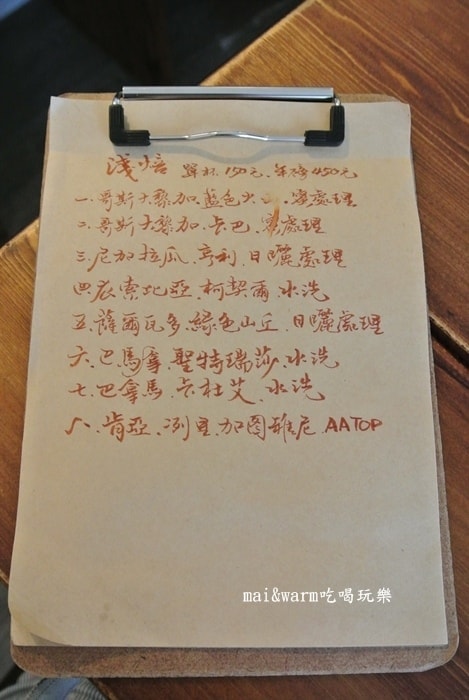 淺焙 單杯150元.半磅450元
一.哥斯大黎加.藍色火.蜜處理
二.哥斯大黎加.卡巴.蜜處理
三.尼加拉瓜.亨利.日曬處理
四.衣索比亞.柯契爾.水洗
五.薩爾瓦多.綠色山丘.日曬處理
六.巴馬拿.聖特瑞莎.水洗
七.巴拿馬.卡杜艾.水洗
八.肯亞.冽里.加圖雅尼.AATOP
mai&warm吃喝玩樂